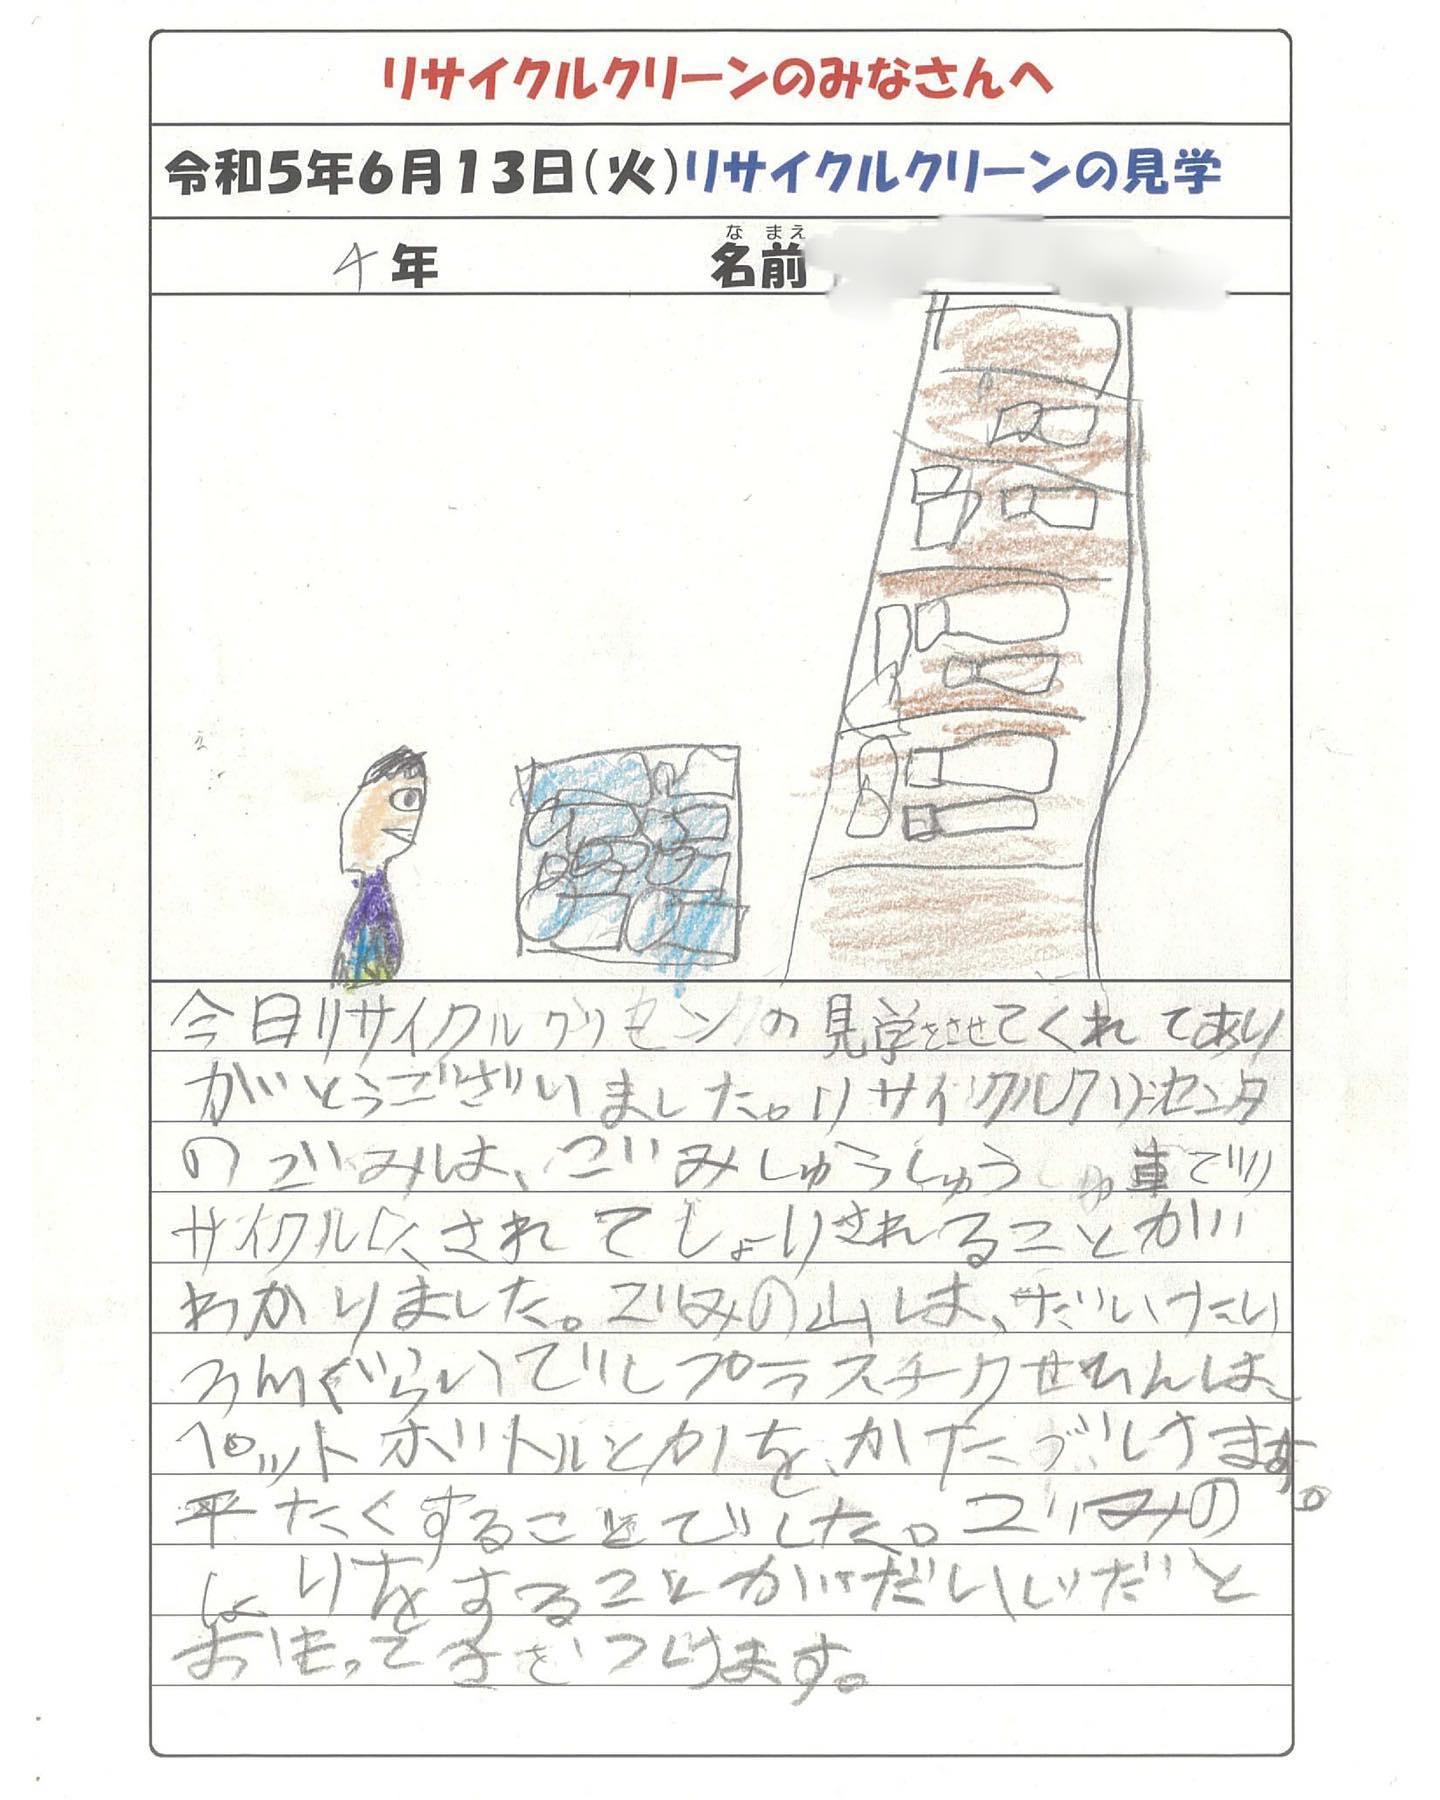 リサイクルクリーンのみなさんへ
令和5年6月13日(火)リサイクルクリーンの見学
なまえ
4年 名前
今日リサイクルクリセンの見学をさせてくれてあり
がとうございました。リサイクルクリーセンタ
のごみは、ごみしゅうしゅう車でリ
サイクルされてしょりされることが
わかりました。ごみの山は、だいたい
ぐらいでしプラスチークせいひんは、
ペットボトルとかを、かたづけます。
平たくすることでした。ごみの
しょりをすることがだいじだと
おもってきをつけます。